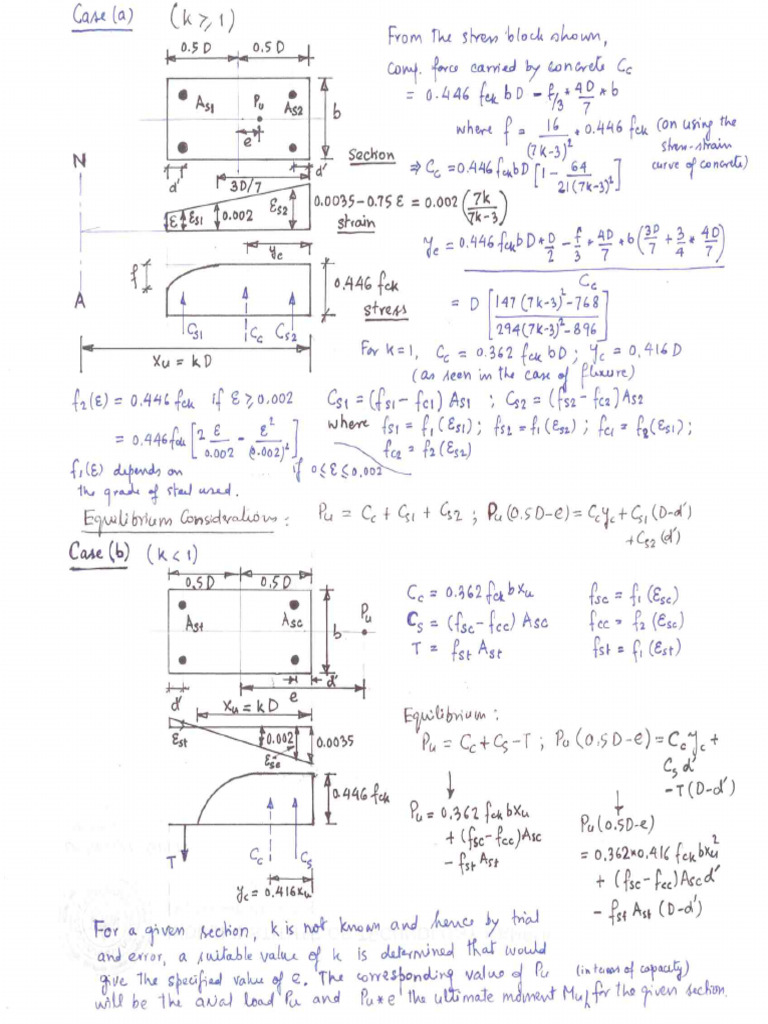 Case (a) (k ≥ 1)
0.5 D 0.5 D
As1 Pu As2
e
b
d' d'
Section
3D/7
N
ε εs1 0.002 εs2
0.0035 - 0.75 ε = 0.002 (7k/7k-3)
strain
yc
f
0.446 fck
stress
Cs1 Cc Cs2
A
xu = kD
From the stress block shown,
comp. force carried by concrete Cc
= 0.446 fck bD - f/3 * 4D/7 * b
where f = 16/(7k-3)² * 0.446 fck (on using the
stress-strain
curve of concrete)
⇒ Cc = 0.446 fck bD [1 - 64/21(7k-3)²]
yc = 0.446 fck bD * D/2 - f/3 * 4D/7 * b (3D/7 + 3/4 * 4D/7)
Cc
= D [147(7k-3)² - 768 / 294(7k-3)² - 896]
For k=1, Cc = 0.362 fck bD ; yc = 0.416 D
(as seen in the case of flexure)
f2(ε) = 0.446 fck if ε ≥ 0.002
= 0.446 fck [2 ε/0.002 - ε²/(0.002)²] if 0 ≤ ε ≤ 0.002
f1(ε) depends on
the grade of steel used.
Cs1 = (fs1 - fc1) As1 ; Cs2 = (fs2 - fc2) As2
where fs1 = f1(εs1) ; fs2 = f1(εs2) ; fc1 = f2(εs1) ;
fc2 = f2(εs2)
Equilibrium Considerations : Pu = Cc + Cs1 + Cs2 ; Pu(0.5D-e) = Cc yc + Cs1 (D-d')
+ Cs2 (d')
Case (b) (k < 1)
0.5D 0.5D
Ast Asc
Pu
b
d' d'
e
xu = kD
εst 0.002 0.0035
εsc
0.446 fck
T Cc Cs
yc = 0.416xu
Cc = 0.362 fck b xu fsc = f1 (εsc)
Cs = (fsc - fcc) Asc fcc = f2 (εsc)
T = fst Ast fst = f1 (εst)
Equilibrium :
Pu = Cc + Cs - T ; Pu (0.5D-e) = Cc yc +
Cs d'
- T (D-d')
Pu = 0.362 fck bxu
+ (fsc - fcc) Asc
- fst Ast
Pu (0.5D-e)
= 0.362*0.416 fck bxu²
+ (fsc - fcc) Asc d'
- fst Ast (D-d')
For a given section, k is not known and hence by trial
and error, a suitable value of k is determined that would
give the specified value of e. The corresponding value of Pu (in terms of capacity)
will be the axial load Pu and Pu*e the ultimate moment Mu, for the given section.